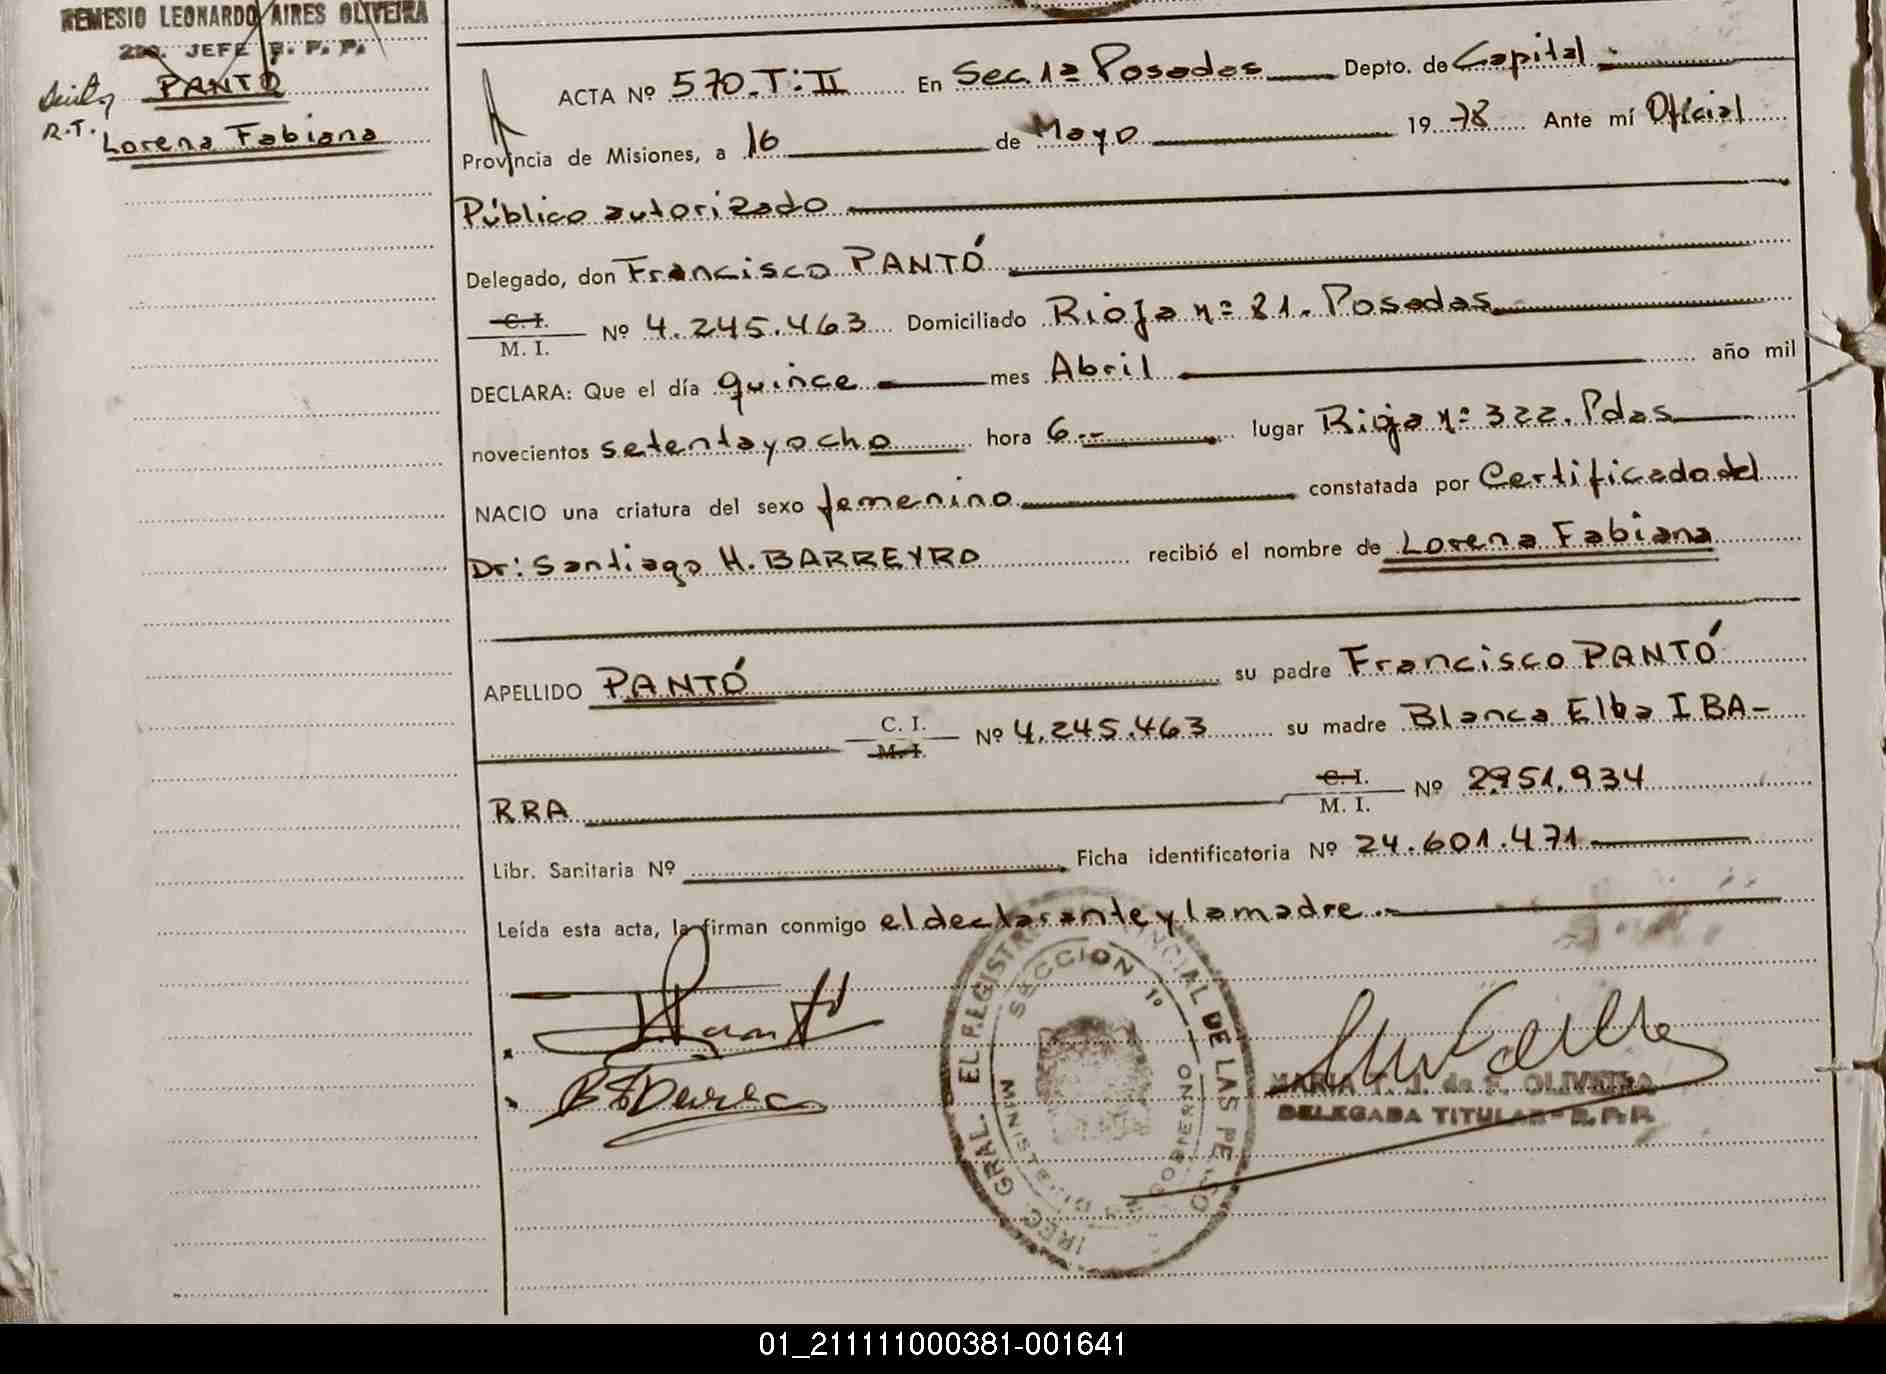 NEMESIO LEONARDO AIRES OLIVEIRA
2do. JEFE R. P. P.
PANTO
R.T.
Lorena Fabiana
ACTA Nº 570.T:II En Sec.1ª Posadas Depto. de Capital
Provincia de Misiones, a 16 de Mayo 1978 Ante mí Oficial
Público autorizado
Delegado, don Francisco PANTÓ
C. I.
M. I. Nº 4.245.463 Domiciliado Rioja nº 81. Posadas
DECLARA: Que el día quince mes Abril año mil
novecientos setenta y ocho hora 6.-- lugar Rioja nº 322. Pdas
NACIO una criatura del sexo femenino constatada por Certificado del
Dr: Santiago H. BARREYRO recibió el nombre de Lorena Fabiana
APELLIDO PANTÓ su padre Francisco PANTÓ
C. I.
M. I. Nº 4.245.463 su madre Blanca Elba IBA-
RRA C. I.
M. I. Nº 2.951.934
Libr. Sanitaria Nº Ficha identificatoria Nº 24.601.471
Leída esta acta, la firman conmigo el declarante y la madre.-
SECCION 1º
GRAL. DEL REGISTRO PROVINCIAL DE LAS PERSO
MINISTERIO DE GOBIERNO
MARIA T. J. de F. OLIVEIRA
DELEGADA TITULAR - R. P. P.
01_211111000381-001641